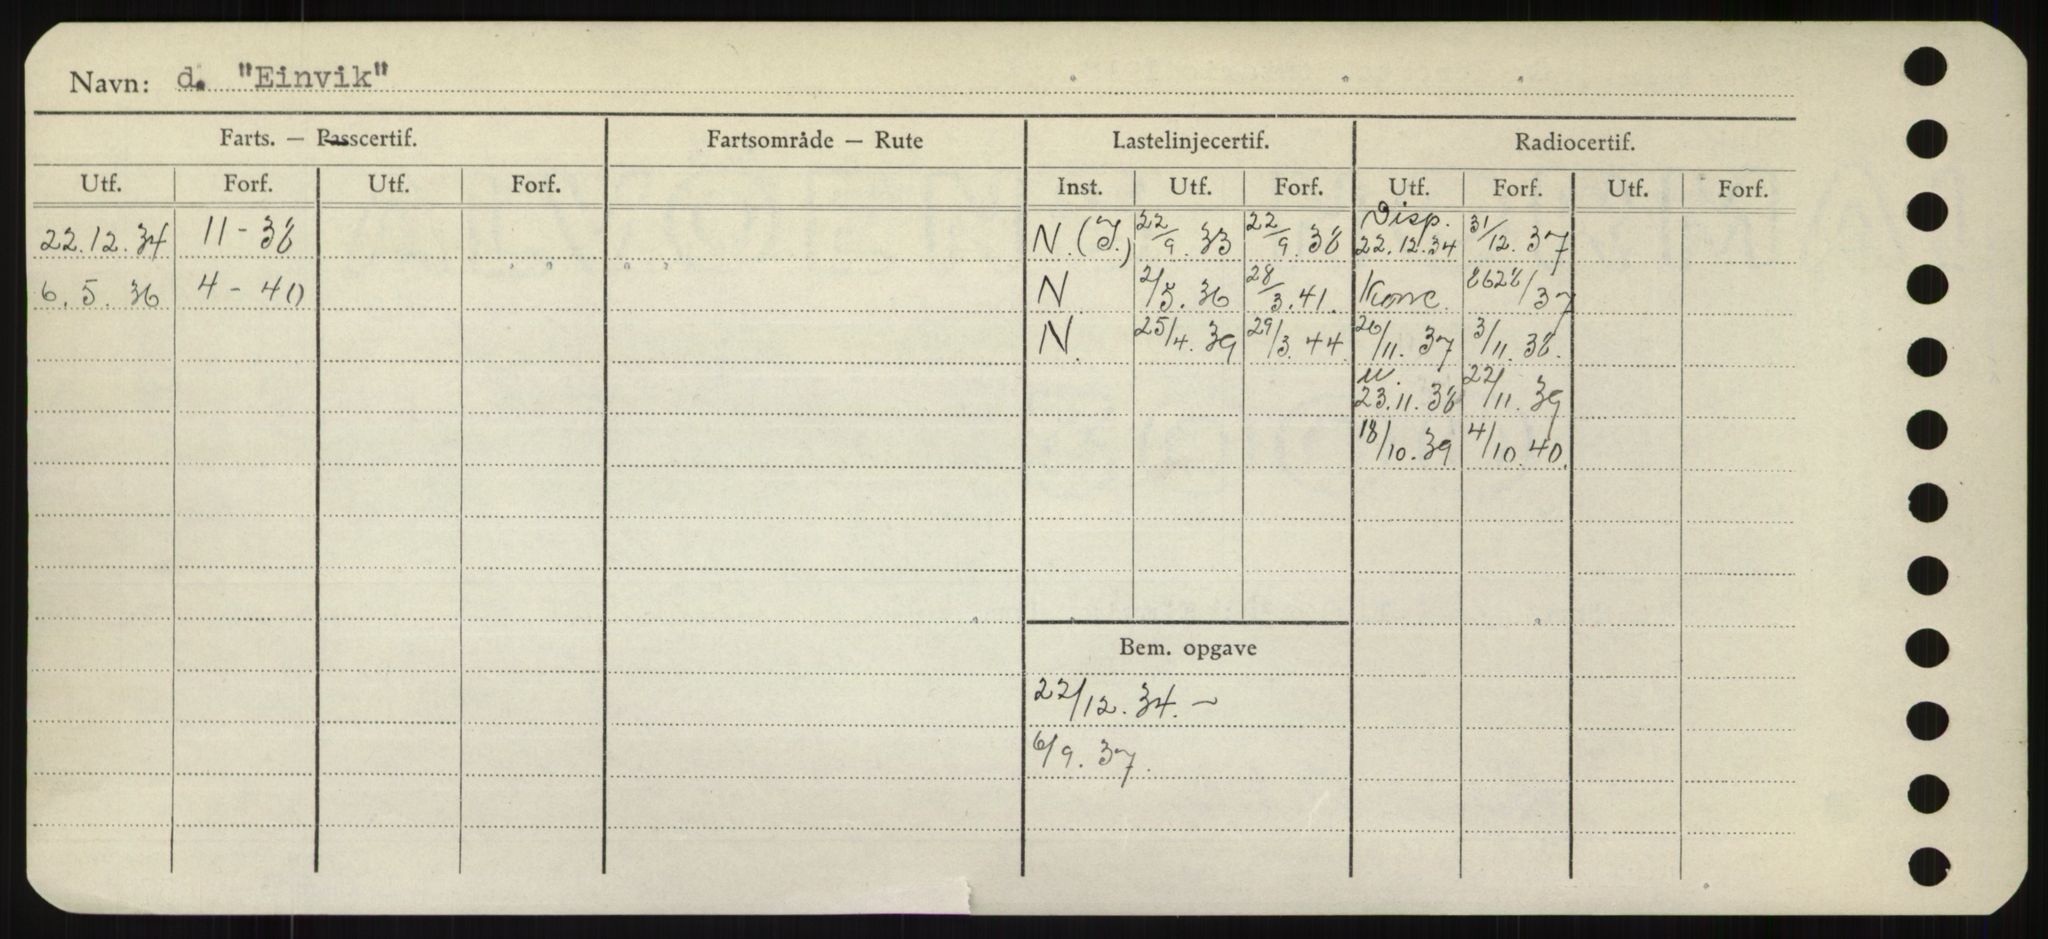 Navn: d. "Einvik"
Farts. — Passcertif. Fartsområde — Rute Lastelinjecertif. Radiocertif.
Utf. Forf. Utf. Forf. Inst. Utf. Forf. Utf. Forf. Utf. Forf.
22.12.34 11-38 N.(I.) 22/9.33 22/9.38 Disp. 22.12.34 31/12.37
6.5.36 4-40 N 2/5.36 28/3.41. Konc. 8628/37
N. 25/4.39 29/3.44 26/11.37 3/11.38.
u. 23.11.38 22/11.39
18/10.39 4/10.40.
Bem. opgave
22/12.34.-
6/9.37.